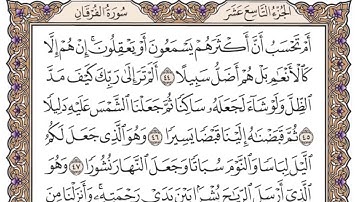 الجزء التاسع عشر سورة الفرقان
أَمْ تَحْسَبُ أَنَّ أَكْثَرَهُمْ يَسْمَعُونَ أَوْ يَعْقِلُونَ إِنْ هُمْ إِلَّا
كَالْأَنْعَٰمِ بَلْ هُمْ أَضَلُّ سَبِيلًا ٤٤ أَلَمْ تَرَ إِلَىٰ رَبِّكَ كَيْفَ مَدَّ
ٱلظِّلَّ وَلَوْ شَآءَ لَجَعَلَهُۥ سَاكِنًا ثُمَّ جَعَلْنَا ٱلشَّمْسَ عَلَيْهِ دَلِيلًا
٤٥ ثُمَّ قَبَضْنَٰهُ إِلَيْنَا قَبْضًا يَسِيرًا ٤٦ وَهُوَ ٱلَّذِى جَعَلَ لَكُمُ
ٱلَّيْلَ لِبَاسًا وَٱلنَّوْمَ سُبَاتًا وَجَعَلَ ٱلنَّهَارَ نُشُورًا ٤٧ وَهُوَ
ٱلَّذِىٓ أَرْسَلَ ٱلرِّيَٰحَ بُشْرًۢا بَيْنَ يَدَىْ رَحْمَتِهِۦ وَأَنزَلْنَا مِنَ